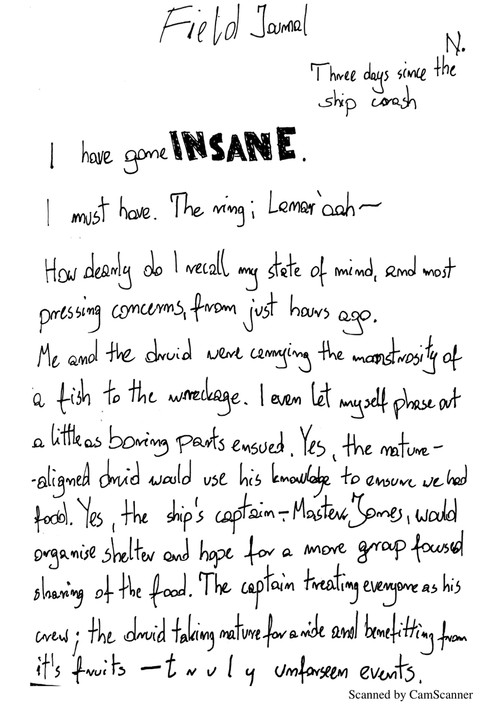 Field Journal
N.
Three days since the
ship crash
I have gone INSANE.
I must have. The ring; Lemar'aah—
How dearly do I recall my state of mind, and most
pressing concerns, from just hours ago.
Me and the druid were carrying the monstrosity of
a fish to the wreckage. I even let myself phase out
a little as boring parts ensued. Yes, the nature-
-aligned druid would use his knowledge to ensure we had
food. Yes, the ship's captain - Master Jones, would
organise shelter and hope for a more group focused
sharing of the food. The captain treating everyone as his
crew; the druid taking nature for a ride and benefitting from
it's fruits — truly unforseen events.
Scanned by CamScanner